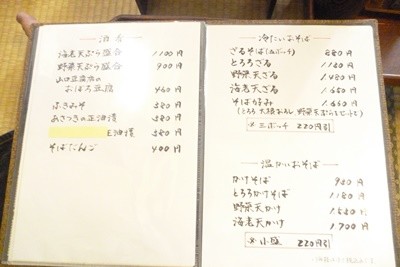 酒肴
海老天ぷら盛合 1100円
野菜天ぷら盛合 900円
山口豆腐木の
おぼろ豆腐 460円
ふきみそ 380円
あさつきの正油漬 380円
正油漬 380円
そばだんご 400円
冷たいおそば
ざるそば 880円
とろろざる 1180円
野菜天ざる 1480円
海老天ざる 1650円
そば好み 1650円
(とろろ 大根おろし 野菜天ぷら
※三ボッチ 220円引
温かいおそば
かけそば 980円
とろろかけそば 1180円
野菜天かけ 1530円
海老天かけ 1700円
※小盛 220円引